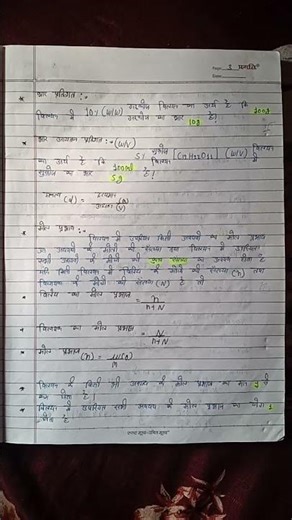 भार प्रतिशत :-
विलयन में 10% (W/W) का अर्थ है कि 100g
विलयन में का भार 10g है।
भार आयतन प्रतिशत :- (W/V)
5% ग्लूकोज [C6H12O6] (W/V) विलयन
का अर्थ है कि 100ml विलयन में
ग्लूकोज का भार 5g है।
(d) =
(V)
मोल प्रभाज :-
विलयन में उपस्थित किसी अवयवी के मोल प्रभाज
उस अवयवी के मोलों की संख्या तथा विलयन में उपस्थित
सभी अवयवों के मोलों की कुल संख्या का अनुपात होता है
यदि किसी विलयन में विलेय के मोलों की संख्या (n) तथा
विलायक के मोलों की संख्या (N) हो तो
विलेय का मोल प्रभाज = n
n+N
विलायक का मोल प्रभाज = N
n+N
मोल (n) =
विलयन में किसी भी अवयव के मोल प्रभाज का मान 1 से
कम होता है।
विलयन में उपस्थित सभी अवयव के मोल प्रभाज का योग 1
होता है